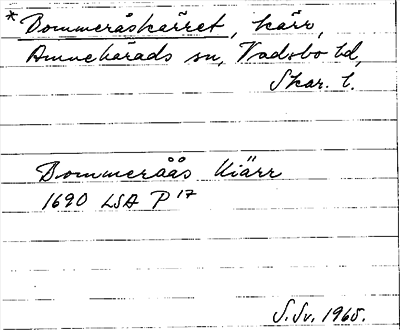 * Bommeråskärret, kärr,
Amnehärads sn, Vadsbo hd,
Skar. l.
Bommeråås Kiärr
1690 LSA P 17
S. Sv. 1965.